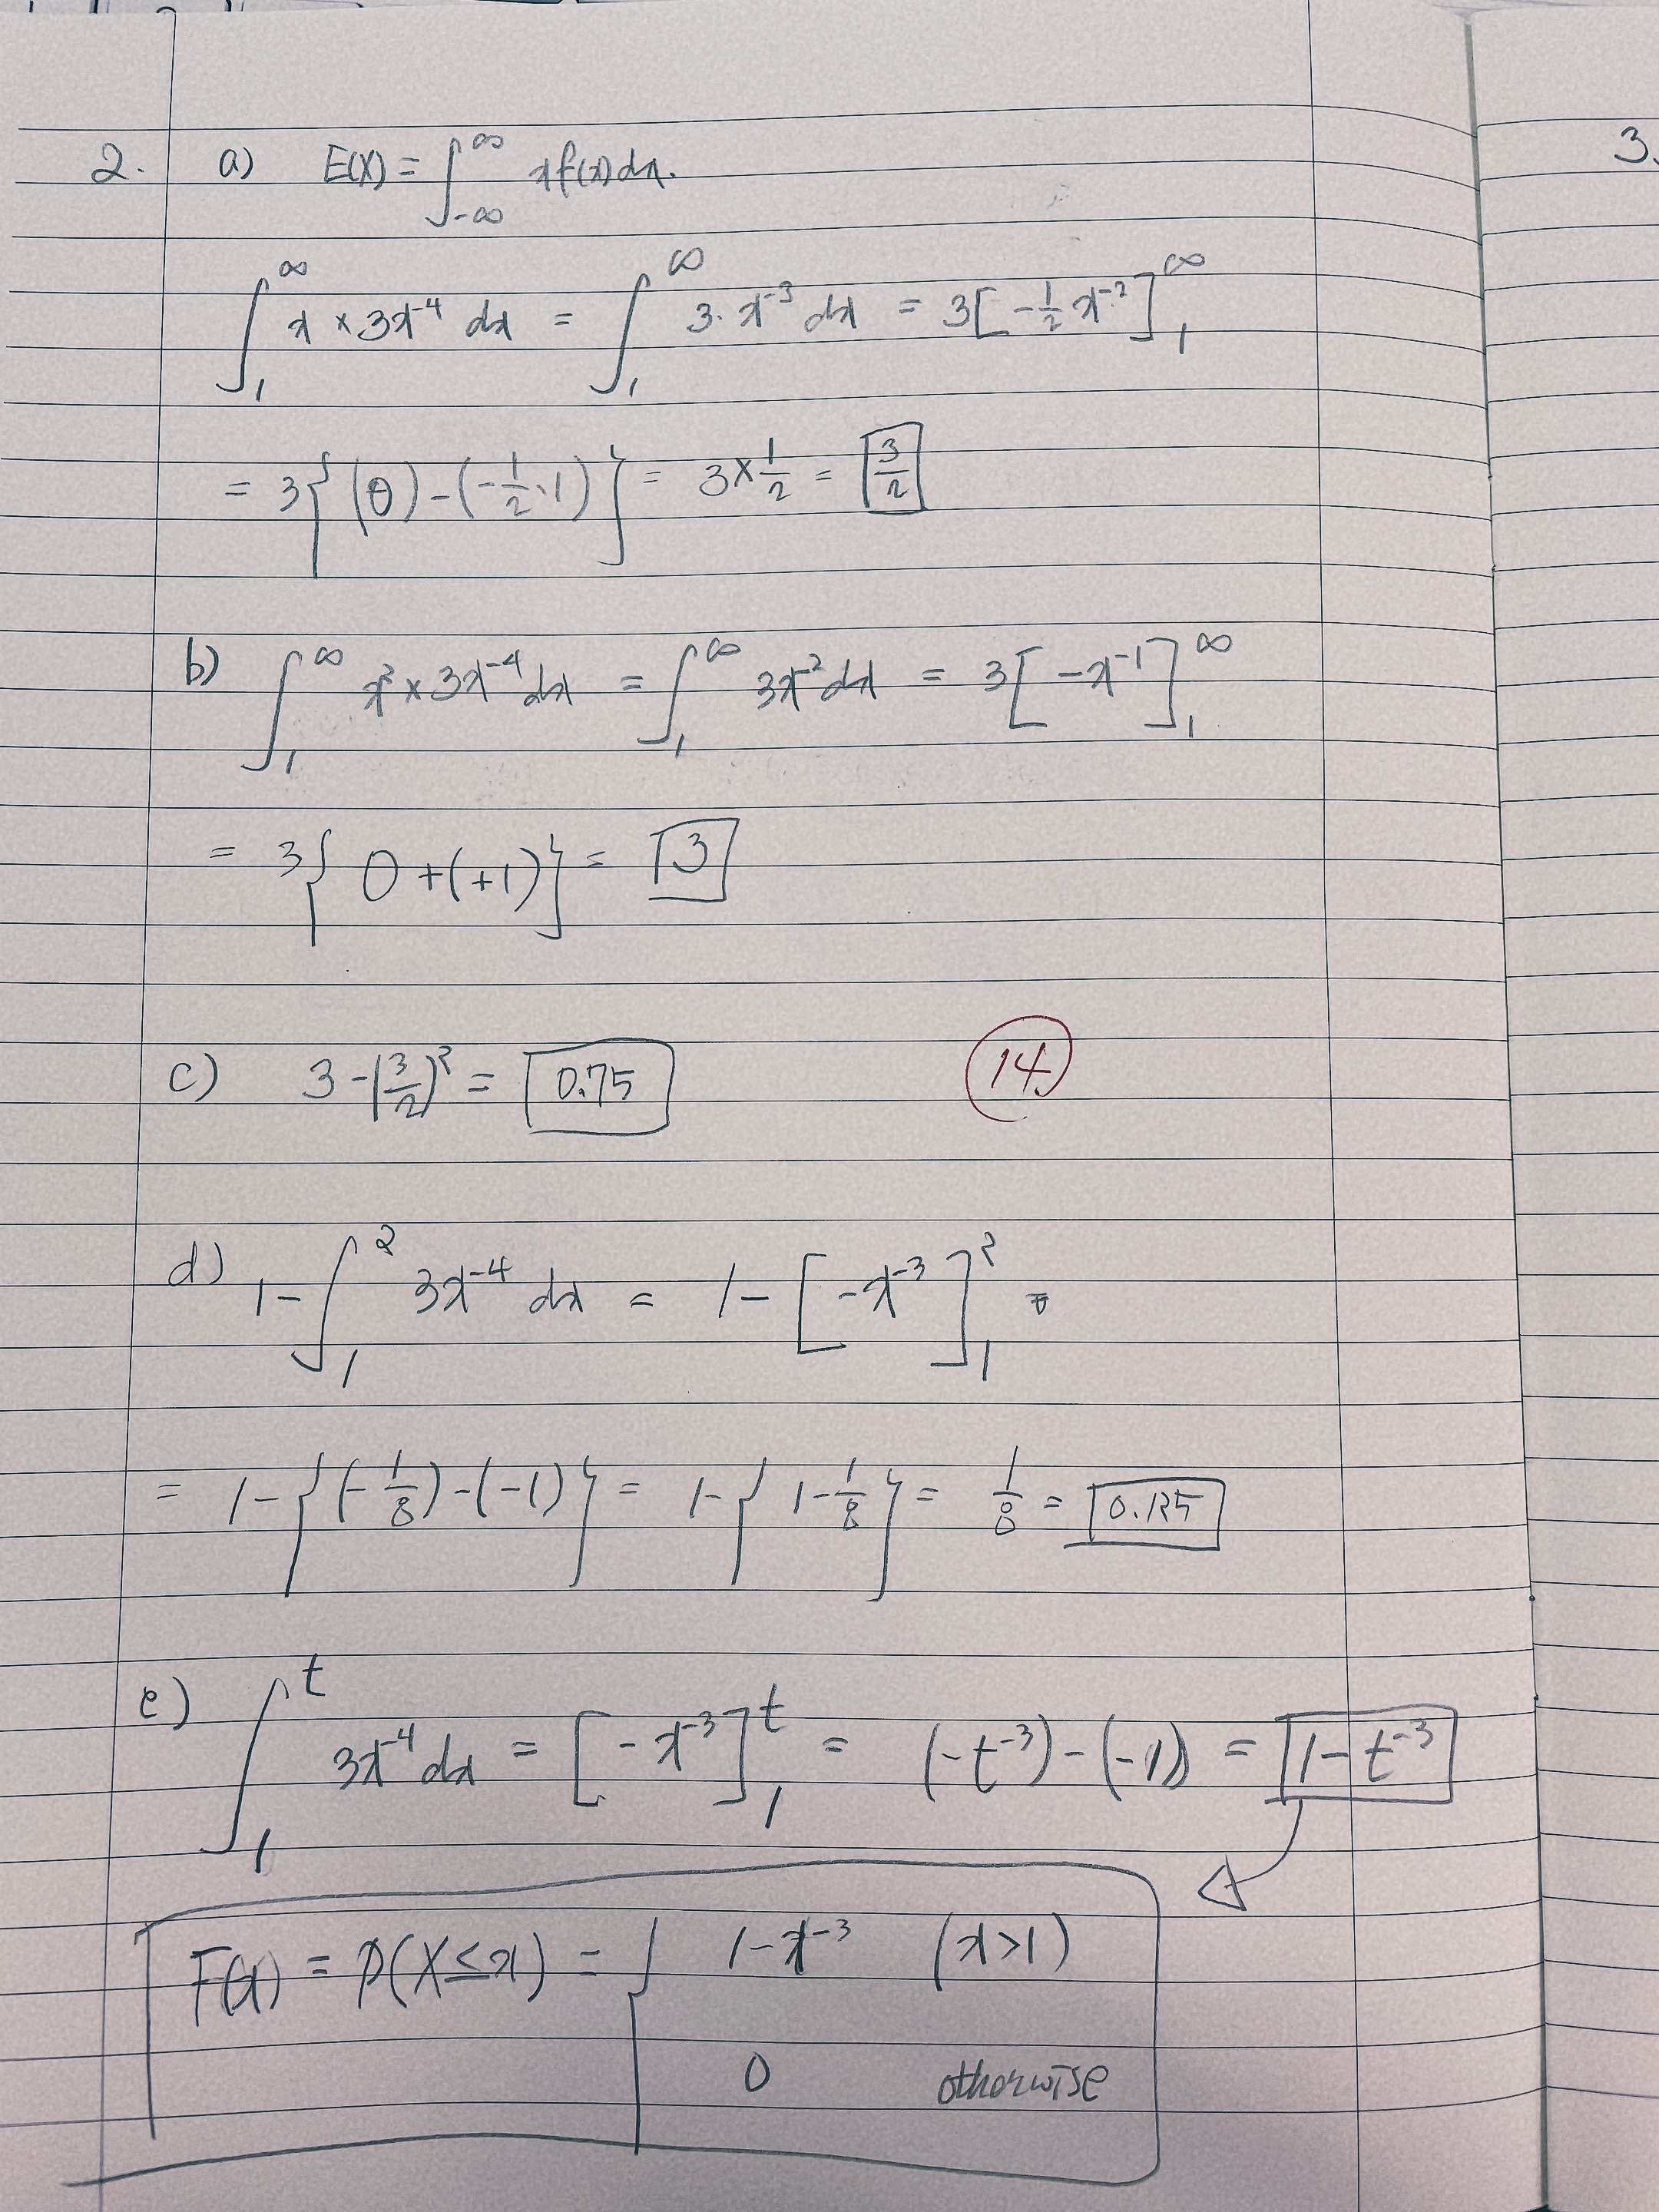 2. a) E(X) = ∫_{-∞}^{∞} x f(x) dx.
3.
∫_1^∞ x × 3x^{-4} dx = ∫_1^∞ 3·x^{-3} dx = 3[-1/2 x^{-2}]_1^∞
= 3{(0) - (-1/2·1)} = 3 × 1/2 = 3/2
b) ∫_1^∞ x² × 3x^{-4} dx = ∫_1^∞ 3x^{-2} dx = 3[-x^{-1}]_1^∞
= 3{0 + (+1)} = 3
c) 3 - (3/2)² = 0.75
14.
d) 1 - ∫_1^2 3x^{-4} dx = 1 - [-x^{-3}]_1^2 =
= 1 - {(-1/8) - (-1)} = 1 - {1 - 1/8} = 1/8 = 0.125
e) ∫_1^t 3x^{-4} dx = [-x^{-3}]_1^t = (-t^{-3}) - (-1) = 1 - t^{-3}
F(x) = P(X ≤ x) = { 1 - x^{-3} (x > 1)
0 otherwise